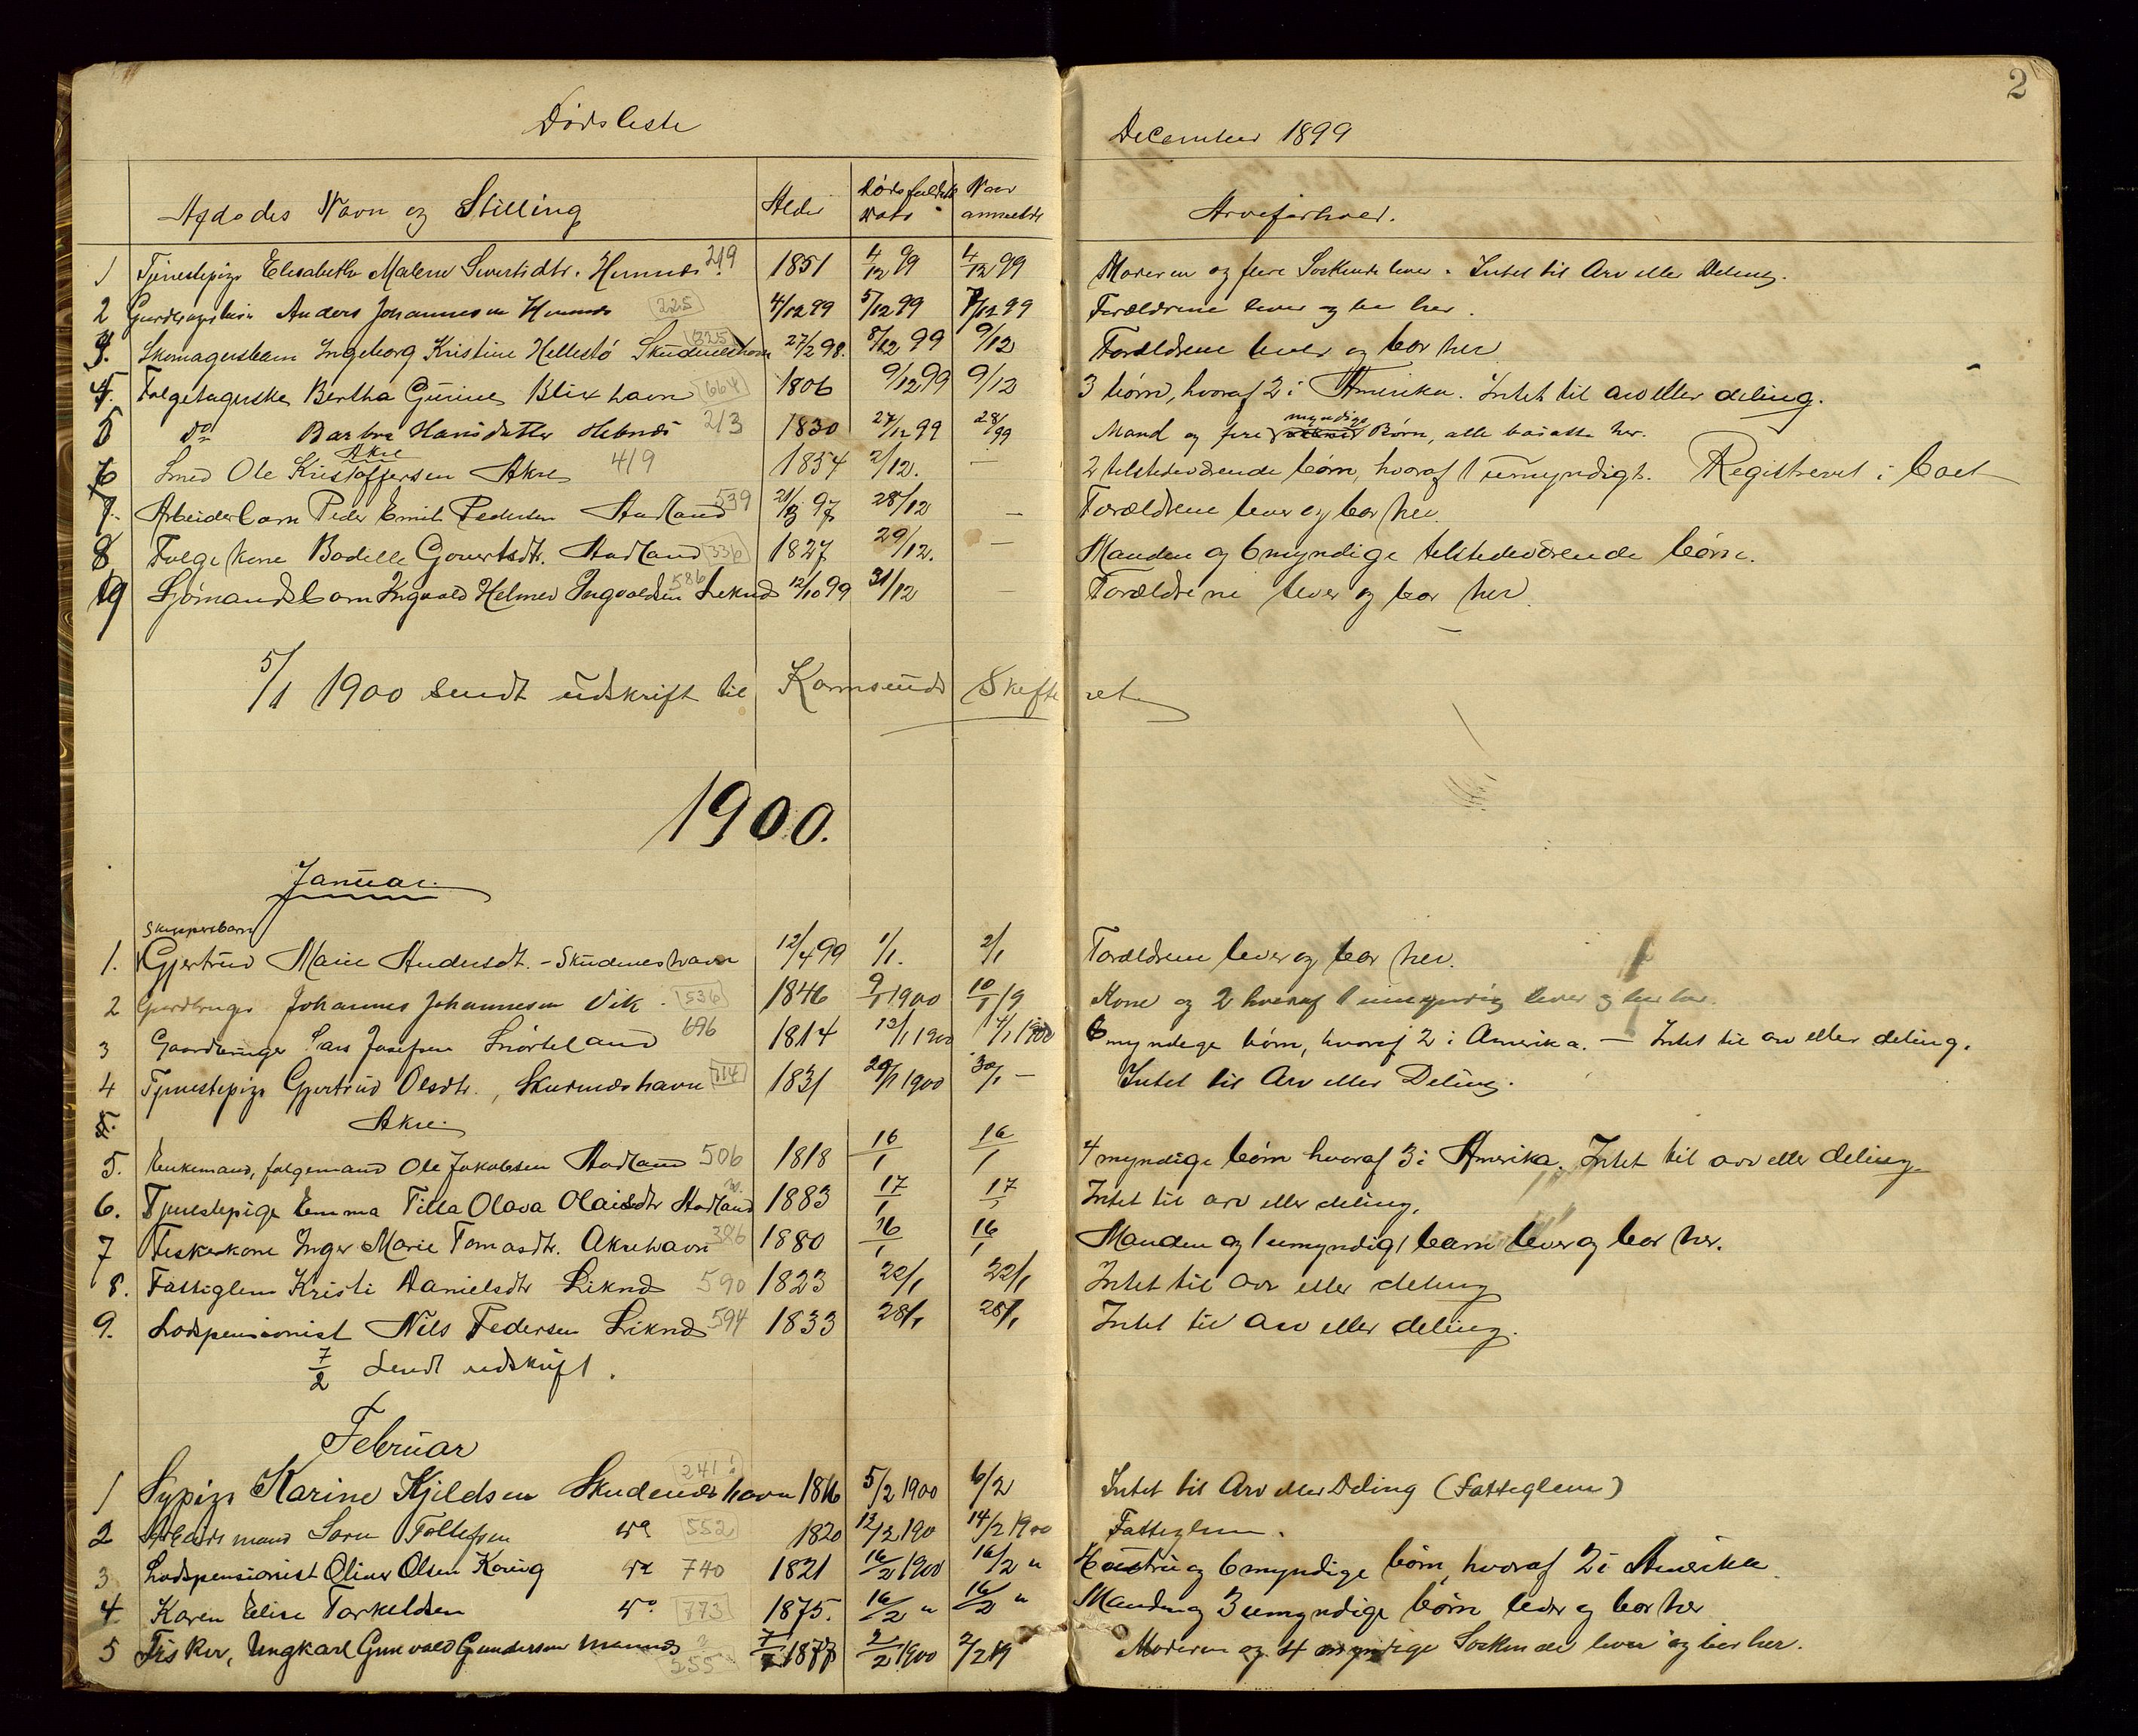 2
Dødsliste December 1899
Afdødes Navn og Stilling Alder Dødsfaldets Dato Naar anmeldt Arveforhold.
1 Tjenestepige Elisabeth Malene Sivertsdtr. 219 1851 4/12 99 4/12 99 Moderen og flere Søskende lever. Intet til Arv eller Deling.
2 Anders Johannesen 225 4/12 99 5/12 99 7/12 99 Forældrene lever og bor her.
3. Skomagersbarn Ingeborg Kristine Hellestø Skudeneshavn 325 27/2 98. 8/12 99 9/12 Forældrene lever og bor her
4. Bertha Gurine Blixhavn 664 1806 9/12 99 9/12 3 børn, hvoraf 2 i Amerika. Intet til arv eller deling.
5 do Barbra Hansdatter 213 1830 27/12 99 28/99 Mand og fire myndige Børn, alle bosatte her.
Akre
6 Smed Ole Kristoffersen Akre 419 1854 2/12. — 2 tilstedeværende børn, hvoraf 1 umyndigt. Registreret i boet
7. Arbeiderbarn Peder Emil Pedersen Stadland 539 21/3 97 28/12 — Forældrene lever og bor her.
8 Folgekone Bodille Govertsdtr. Stadland 336 1827 29/12. — Manden og 6 myndige tilstedeværende børn.
9 Sjømandsbarn Ingvald Helmer Ingvaldsen Liknes 586 12/10 99 31/12 — Forældrene lever og bor her.
5/1 1900 sendt udskrift til Karmsunds Skifteret
1900.
Januar.
Skippersbarn
1. Gjertrud Marie Andersdt. - Skudeneshavn 12/4 99 1/1. 2/1 Forældrene lever og bor her.
2 Gardbruger Johannes Johannesen Vik. 536 1846 9/1 1900 10/1 19 Kone og 2 hvoraf 1 umyndig lever og bor her.
3 Gaardbruger Lars Josefsen Snørteland 696 1814 13/1 1900 14/1 1900 6 myndige børn, hvoraf 2 i Amerika. — Intet til arv eller deling.
4 Tjenestepige Gjertrud Olsdtr., Skudeneshavn 714 1831 29/1 1900 30/1 — Intet til Arv eller Deling.
Akre.
5. Enkemand, folgemand Ole Jakobsen Stadland 506 1818 16/1 16/1 4 myndige børn hvoraf 3 i Amerika. Intet til arv eller deling
6. Tjenestepige Emma Tilla Olava Olaisdtr Stadland 1883 17/1 17/1 Intet til arv eller deling.
7 Fiskerkone Inger Marie Tomasdtr. Akrehavn 386 1880 16/1 16/1 Manden og 1 umyndigt barn lever og bor her.
8. Fattiglem Kristi Danielsdtr Liknes 590 1823 22/1 22/1 Intet til arv eller deling
9. Lodspensionist Nils Pedersen Liknes 594 1833 28/1 28/1 Intet til arv eller deling.
7/2 Sendt udskrift.
Februar
1 Sypige Karine Kjeldsen Skudeneshavn 241! 1816 5/2 1900 6/2 Intet til Arv eller Deling (Fattiglem)
2 Arbeidsmand Søren Tollefsen do 552 1820 13/2 190 14/2 1900 Fattiglem.
3 Lodspensionist Oliver Olsen Koring do 740 1821 16/2 1900 16/2 " Hustru og 6 myndige børn, hvoraf 2 i Amerika.
4 Karen Elise Torkeldsen do. 773 1875. 16/2 " 16/2 " Manden og 3 umyndige børn lever og bor her
5 Fisker, Ungkarl Gunvald Gundersen 255 7/7 1877 2/2 1900 2/2 19 Moderen og 4 myndige Søskende lever og bor her.